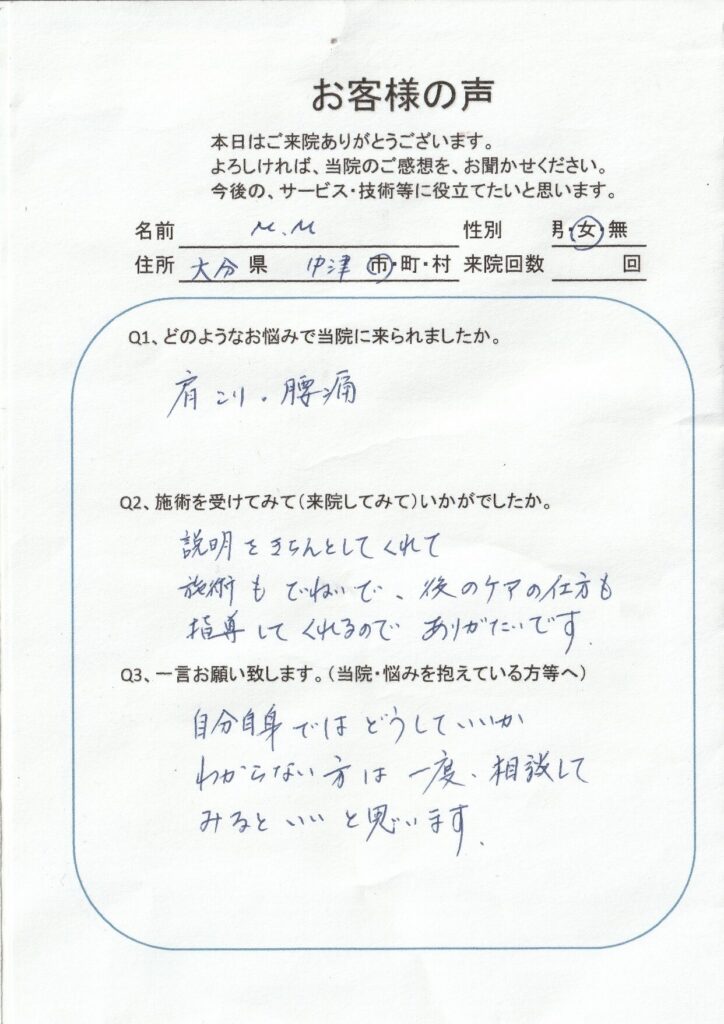 お客様の声
本日はご来院ありがとうございます。
よろしければ、当院のご感想を、お聞かせください。
今後の、サービス・技術等に役立てたいと思います。
名前 M.M 性別 男・女・無
住所 大分 県 中津 市・町・村 来院回数 回
Q1、どのようなお悩みで当院に来られましたか。
肩こり・腰痛
Q2、施術を受けてみて(来院してみて)いかがでしたか。
説明をきちんとしてくれて
施術もていねいで、後のケアの仕方も
指導してくれるので ありがたいです.
Q3、一言お願い致します。(当院・悩みを抱えている方等へ)
自分自身ではどうしていいか
わからない方は一度、相談して
みるといいと思います.